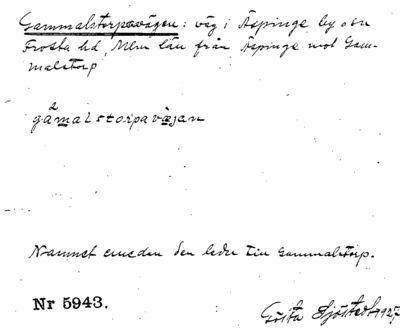 Gammalstorpavägen: väg i Äspinge by o sn
Frosta hd, Mlm län från Äspinge mot Gam-
malstorp
2
gåmalstorpavägen
Namnet emedan den leder till Gammalstorp.
Nr 5943.
Gösta Sjöstedt 1927